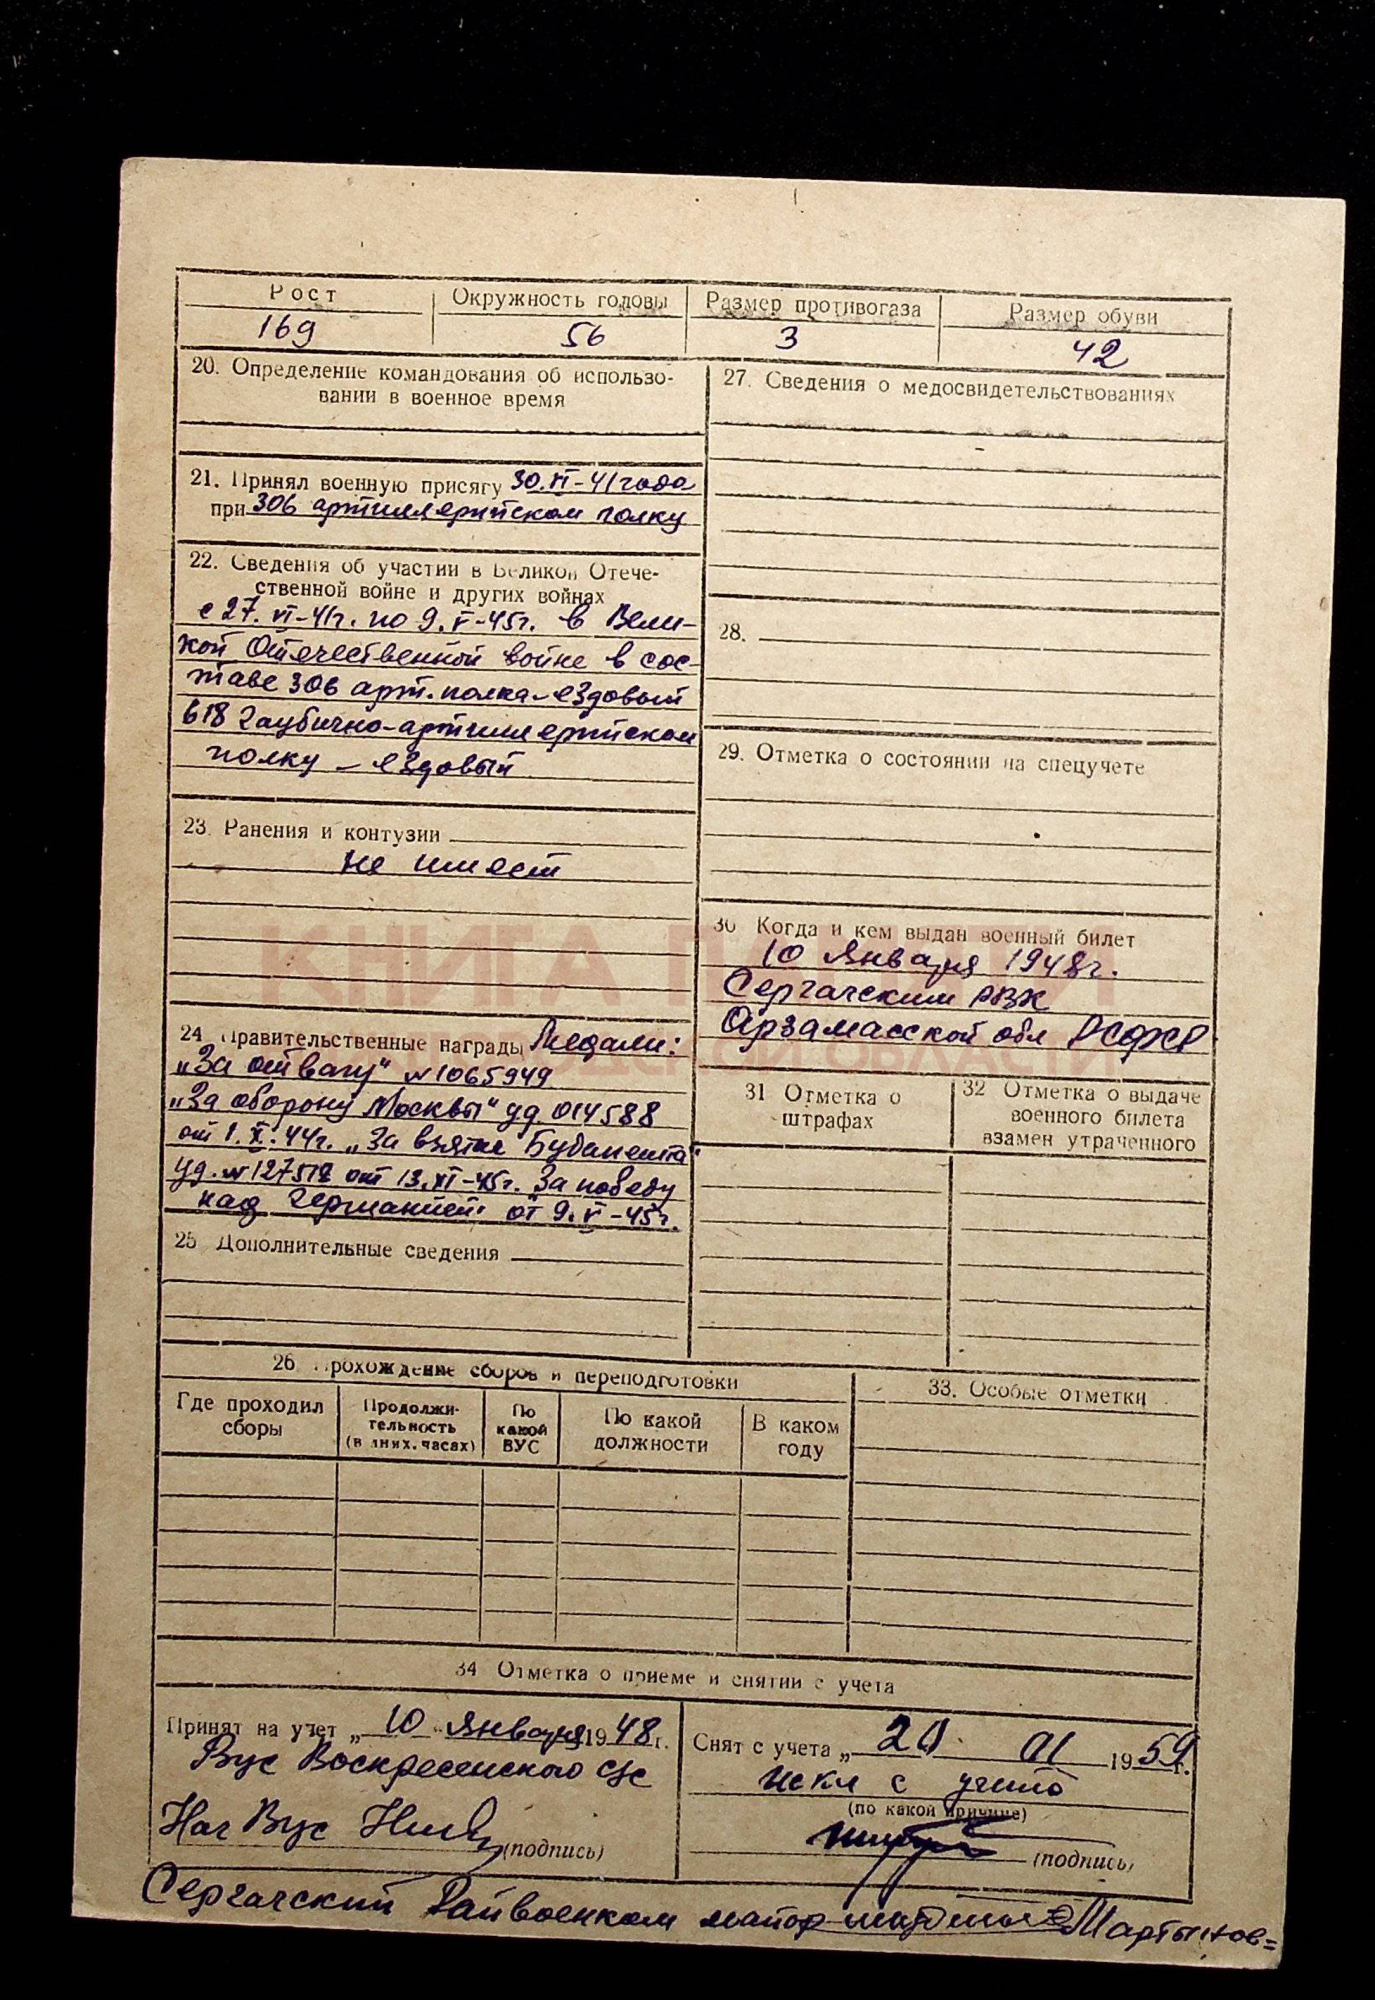 Рост
Окружность головы
Размер противогаза
Размер обуви
169
56
3
42
20. Определение командования об использо-
вании в военное время
21. Принял военную присягу 30.VI-41 года
при 306 артиллерийском полку
22. Сведения об участии в Великой Отече-
ственной войне и других войнах
с 27.VI-41г. по 9.V-45г. в Вели-
кой Отечественной войне в сос-
таве 306 арт. полка - ездовый
618 гаубично-артиллерийском
полку - ездовый
23. Ранения и контузии
не имеет
24. Правительственные награды Медали:
„За отвагу" №1065949
„За оборону Москвы" уд. 014588
от 1.X.44г. „За взятие Будапешта"
уд. № от 13.XI-45г. За победу
над Германией" от 9.V-45г.
25 Дополнительные сведения
27. Сведения о медосвидетельствованиях
28.
29. Отметка о состоянии на спецучете
30 Когда и кем выдан военный билет
10 Января 1948г.
Сергачским РВК
Арзамасской обл РСФСР
31 Отметка о
штрафах
32 Отметка о выдаче
военного билета
взамен утраченного
КНИГА ПАМЯТИ
ОБЛАСТИ
26 Прохождение сборов и переподготовки
Где проходил
сборы
Продолжи-
тельность
(в дних, часах)
По
какой
ВУС
По какой
должности
В каком
году
33. Особые отметки
34 Отметка о приеме и снятии с учета
Принят на учет „ 10 " Января 1948 г.
Вус Воскресенского с/с
Нач Вус
(подпись)
Снят с учета „ 01 1959 г.
искл с учета
(по какой причине)
(подпись)
Сергачский Райвоенком майор Мартынов=